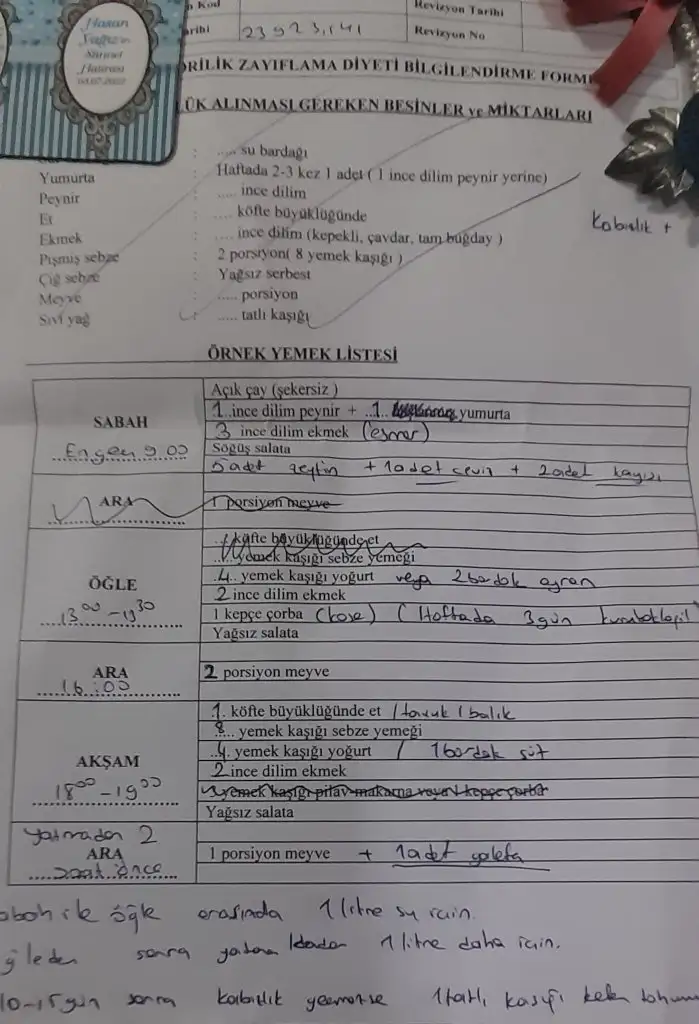 Hasan
Yağız'ın
Sünnet
Hatırası
Kod
Revizyon Tarihi
arihi
Revizyon No
RİLİK ZAYIFLAMA DİYETİ BİLGİLENDİRME FORM
ÜK ALINMASI GEREKEN BESİNLER ve MİKTARLARI
: ..... su bardağı
Yumurta : Haftada 2-3 kez 1 adet ( 1 ince dilim peynir yerine)
Peynir : ..... ince dilim
Et : ..... köfte büyüklüğünde
Ekmek : ..... ince dilim (kepekli, çavdar, tam buğday )
Pişmiş sebze : 2 porsiyon( 8 yemek kaşığı )
Çiğ sebze : Yağsız serbest
Meyve : ..... porsiyon
Sıvı yağ : ..... tatlı kaşığı
Kabızlık +
ÖRNEK YEMEK LİSTESİ
SABAH
En geç 9.00
Açık çay (şekersiz )
1 ince dilim peynir + 1 yumurta
3 ince dilim ekmek (esmer)
Söğüş salata
5 adet zeytin + 1 adet ceviz + 2 adet kayısı
ARA
1 porsiyon meyve
ÖĞLE
13.00 - 13.30
köfte büyüklüğünde et
yemek kaşığı sebze yemeği
4 yemek kaşığı yoğurt veya 2 bardak ayran
2 ince dilim ekmek
1 kepçe çorba (kase) ( Haftada 3 gün kurubaklagil
Yağsız salata
ARA
16:00
2 porsiyon meyve
AKŞAM
18.00 - 19.00
1 köfte büyüklüğünde et / tavuk / balık
8 yemek kaşığı sebze yemeği
4 yemek kaşığı yoğurt / 1 bardak süt
2 ince dilim ekmek
yemek kaşığı pilav-makarna veya 1 kepçe çorba
Yağsız salata
yatmadan 2
ARA
saat önce
1 porsiyon meyve + 1 adet galeta
abah ile öğle arasında 1 litre su için.
ğleden sonra yatana kadar 1 litre daha için.
10-15 gün sonra kabızlık geçmezse 1 tatlı kaşığı keten tohum